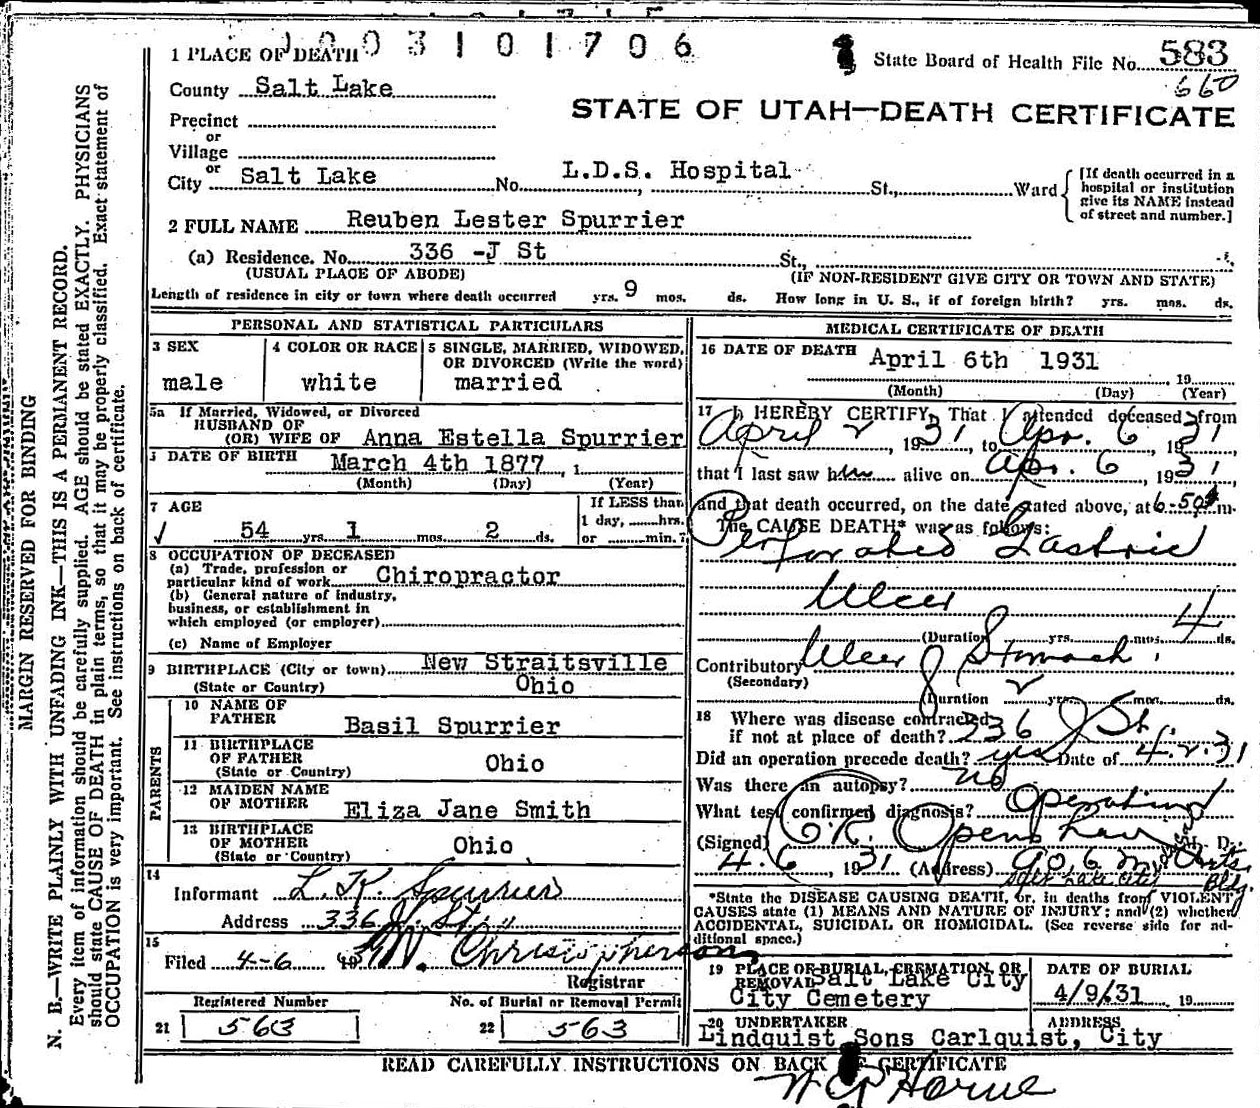 1003101706
1 PLACE OF DEATH
State Board of Health File No. 583
660
County Salt Lake
STATE OF UTAH—DEATH CERTIFICATE
Precinct
or
Village
or
City Salt Lake No. L.D.S. Hospital St., Ward
[If death occurred in a hospital or institution give its NAME instead of street and number.]
2 FULL NAME Reuben Lester Spurrier
(a) Residence. No. 336 -J St St.,
(USUAL PLACE OF ABODE) (IF NON-RESIDENT GIVE CITY OR TOWN AND STATE)
Length of residence in city or town where death occurred yrs. 9 mos. ds. How long in U. S., if of foreign birth? yrs. mos. ds.
PERSONAL AND STATISTICAL PARTICULARS
3 SEX male
4 COLOR OR RACE white
5 SINGLE, MARRIED, WIDOWED, OR DIVORCED (Write the word) married
5a If Married, Widowed, or Divorced
HUSBAND OF
(OR) WIFE OF Anna Estella Spurrier
DATE OF BIRTH March 4th 1877, 1
(Month) (Day) (Year)
7 AGE
54 yrs. 1 mos. 2 ds.
If LESS than
1 day, hrs.
or min.?
8 OCCUPATION OF DECEASED
(a) Trade, profession or
particular kind of work Chiropractor
(b) General nature of industry,
business, or establishment in
which employed (or employer)
(c) Name of Employer
9 BIRTHPLACE (City or town) New Straitsville
(State or Country) Ohio
PARENTS
10 NAME OF
FATHER Basil Spurrier
11 BIRTHPLACE
OF FATHER Ohio
(State or Country)
12 MAIDEN NAME
OF MOTHER Eliza Jane Smith
13 BIRTHPLACE
OF MOTHER Ohio
(State or Country)
14
Informant L. K. Spurrier
Address 336 J. St.
15
Filed 4-6 19 M. Christopherson
Registrar
Registered Number
21 563
No. of Burial or Removal Permit
22 563
MEDICAL CERTIFICATE OF DEATH
16 DATE OF DEATH April 6th 1931
, 19
(Month) (Day) (Year)
17 I HEREBY CERTIFY, That I attended deceased from
April 2, 1931, to Apr. 6, 1931
that I last saw him alive on Apr. 6, 1931
and that death occurred, on the date stated above, at 6:50 m.
The CAUSE DEATH* was as follows:
Perforated Gastric
Ulcer
(Duration) yrs. mos. 4 ds.
Contributory Ulcer of Stomach.
(Secondary)
(Duration 2 yrs. mos. ds.
18 Where was disease contracted
if not at place of death? 336 J St.
Did an operation precede death? yes Date of 4-2-31
Was there an autopsy? no
What test confirmed diagnosis? Operation
(Signed) M. D.
4-6, 1931 (Address) Arts Bldg.
Salt Lake City
*State the DISEASE CAUSING DEATH, or, in deaths from VIOLENT
CAUSES state (1) MEANS AND NATURE OF INJURY; and (2) whether
ACCIDENTAL, SUICIDAL OR HOMICIDAL. (See reverse side for ad-
ditional space.)
19 PLACE OR BURIAL, CREMATION, OR
REMOVAL Salt Lake City
City Cemetery
DATE OF BURIAL
4/9/31 19
20 UNDERTAKER
Lindquist Sons Carlquist, City
ADDRESS
READ CAREFULLY INSTRUCTIONS ON BACK OF CERTIFICATE
Horne
MARGIN RESERVED FOR BINDING
N. B.—WRITE PLAINLY WITH UNFADING INK—THIS IS A PERMANENT RECORD.
Every item of information should be carefully supplied. AGE should be stated EXACTLY. PHYSICIANS
should state CAUSE OF DEATH in plain terms, so that it may be properly classified. Exact statement of
OCCUPATION is very important. See instructions on back of certificate.